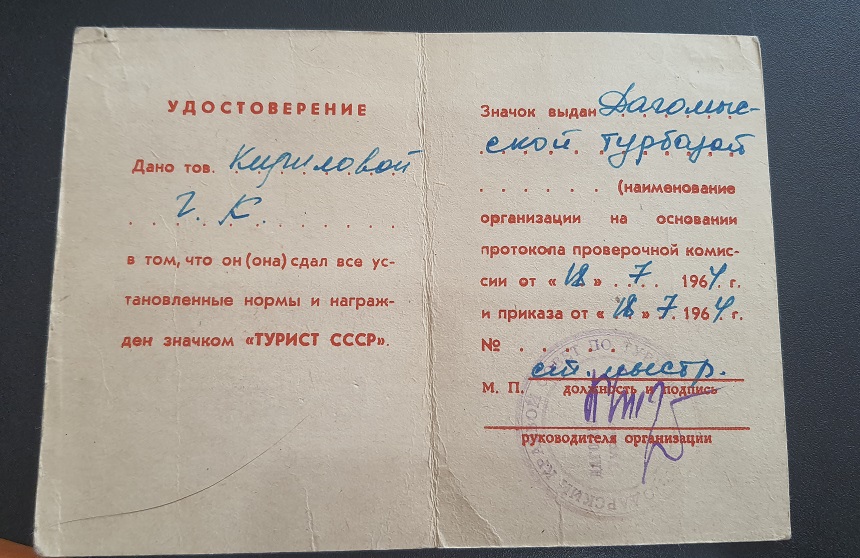 УДОСТОВЕРЕНИЕ
Дано тов. Кириловой
Г. К.
в том, что он (она) сдал все ус-
тановленные нормы и награж-
ден значком «ТУРИСТ СССР».
Значок выдан Дагомыс-
ской турбазой
(наименование
организации на основании
протокола проверочной комис-
сии от «18» 7 1964 г.
и приказа от «18» 7. 1964 г.
№
ст. инстр.
М. П. должность и подпись
руководителя организации